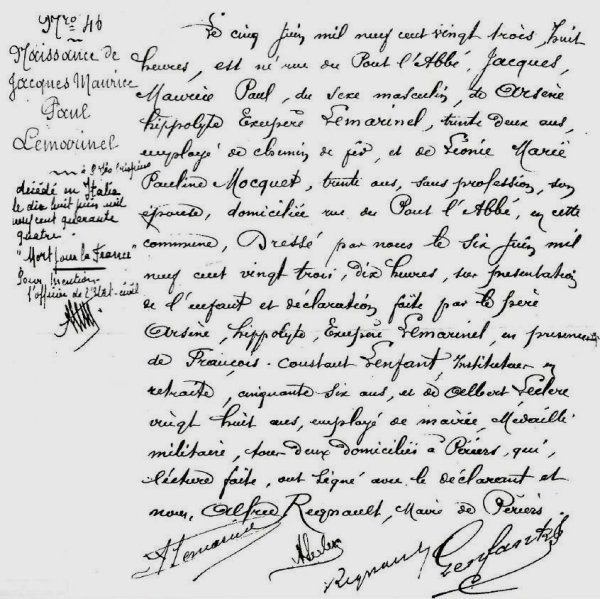 Nro 46
Naissance de
Jacques Maurice
Paul
Lemarinel
décédé en Italie
le dix huit juin mil
neuf cent quarante
quatre.
"Mort pour la France"
Pour Mention
l'officier de l'Etat-civil
Le cinq Juin mil neuf cent vingt trois, huit
heures, est né rue du Pont l'Abbé, Jacques,
Maurice Paul, du sexe masculin, de Arsène
hippolyte Exupère Lemarinel, trente deux ans,
employé de chemin de fer, et de Léonie Marie
Pauline Mocquet, trente ans, sans profession, son
épouse, domiciliés rue du Pont l'Abbé, en cette
commune, Dressé par nous le six Juin mil
neuf cent vingt trois, dix heures, sur présentation
de l'enfant et déclaration faite par le père
Arsène, hippolyte, Exupère Lemarinel, en présence
de François-Constant Lenfant, Instituteur en
retraite, cinquante six ans, et de Albert Leclerc
vingt huit ans, employé de mairie, Médaille
militaire, tous deux domiciliés à Périers, qui,
lecture faite, ont signé avec le déclarant et
nous, Alfred Regnault, Maire de Périers
A Lemarinel
A Leclerc
Regnault
Lenfant